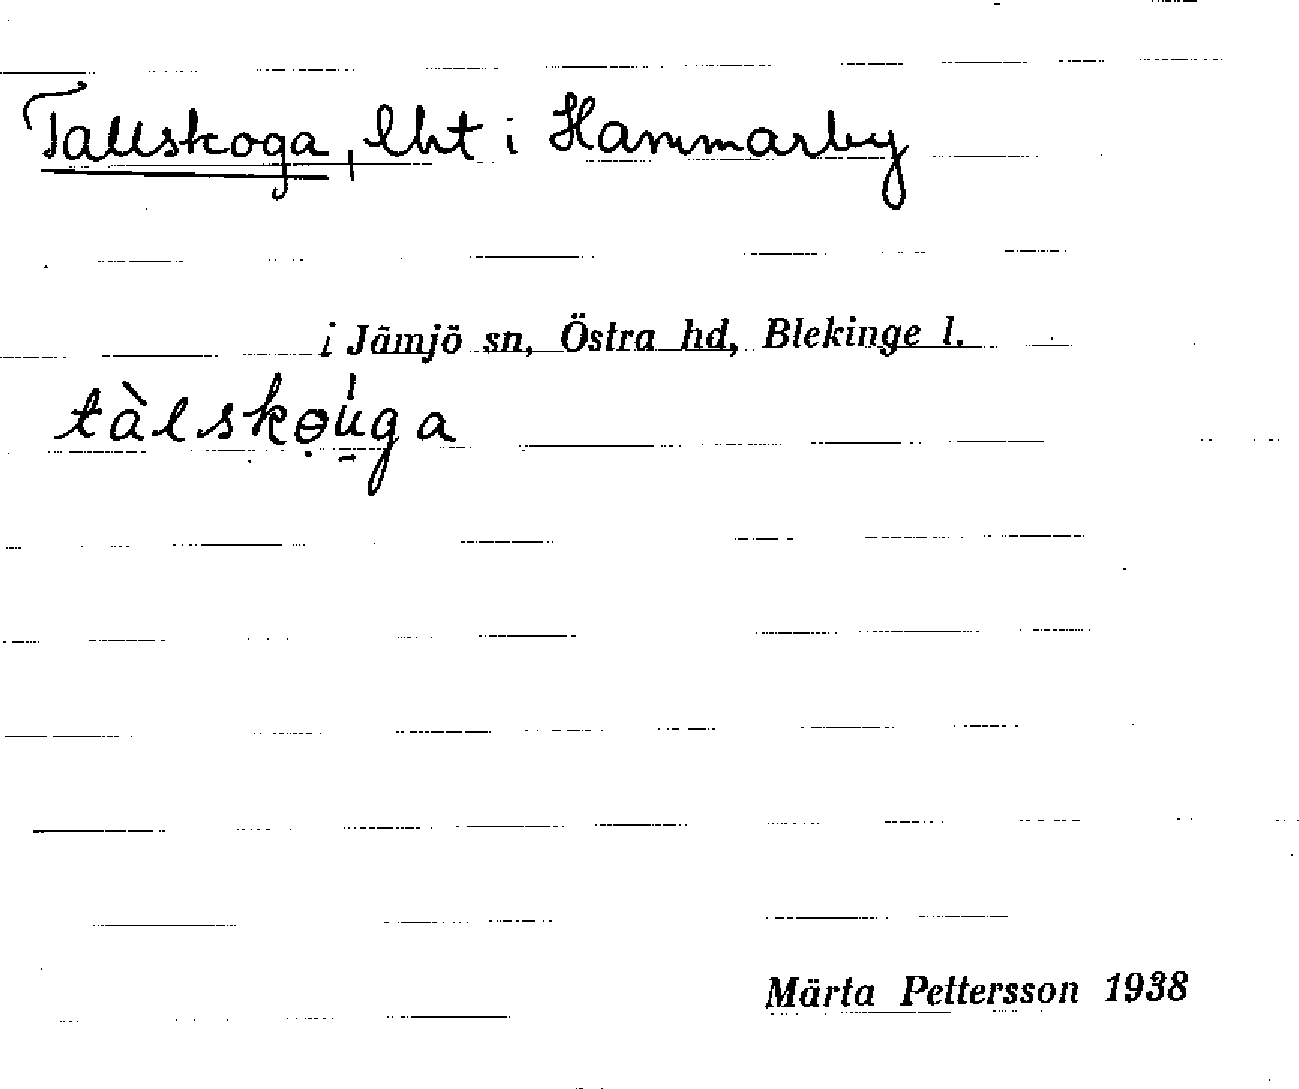 Tallskoga, lht i Hammarby
i Jämjö sn, Östra hd, Blekinge l.
tàlskɵu̍ga
Märta Pettersson 1938